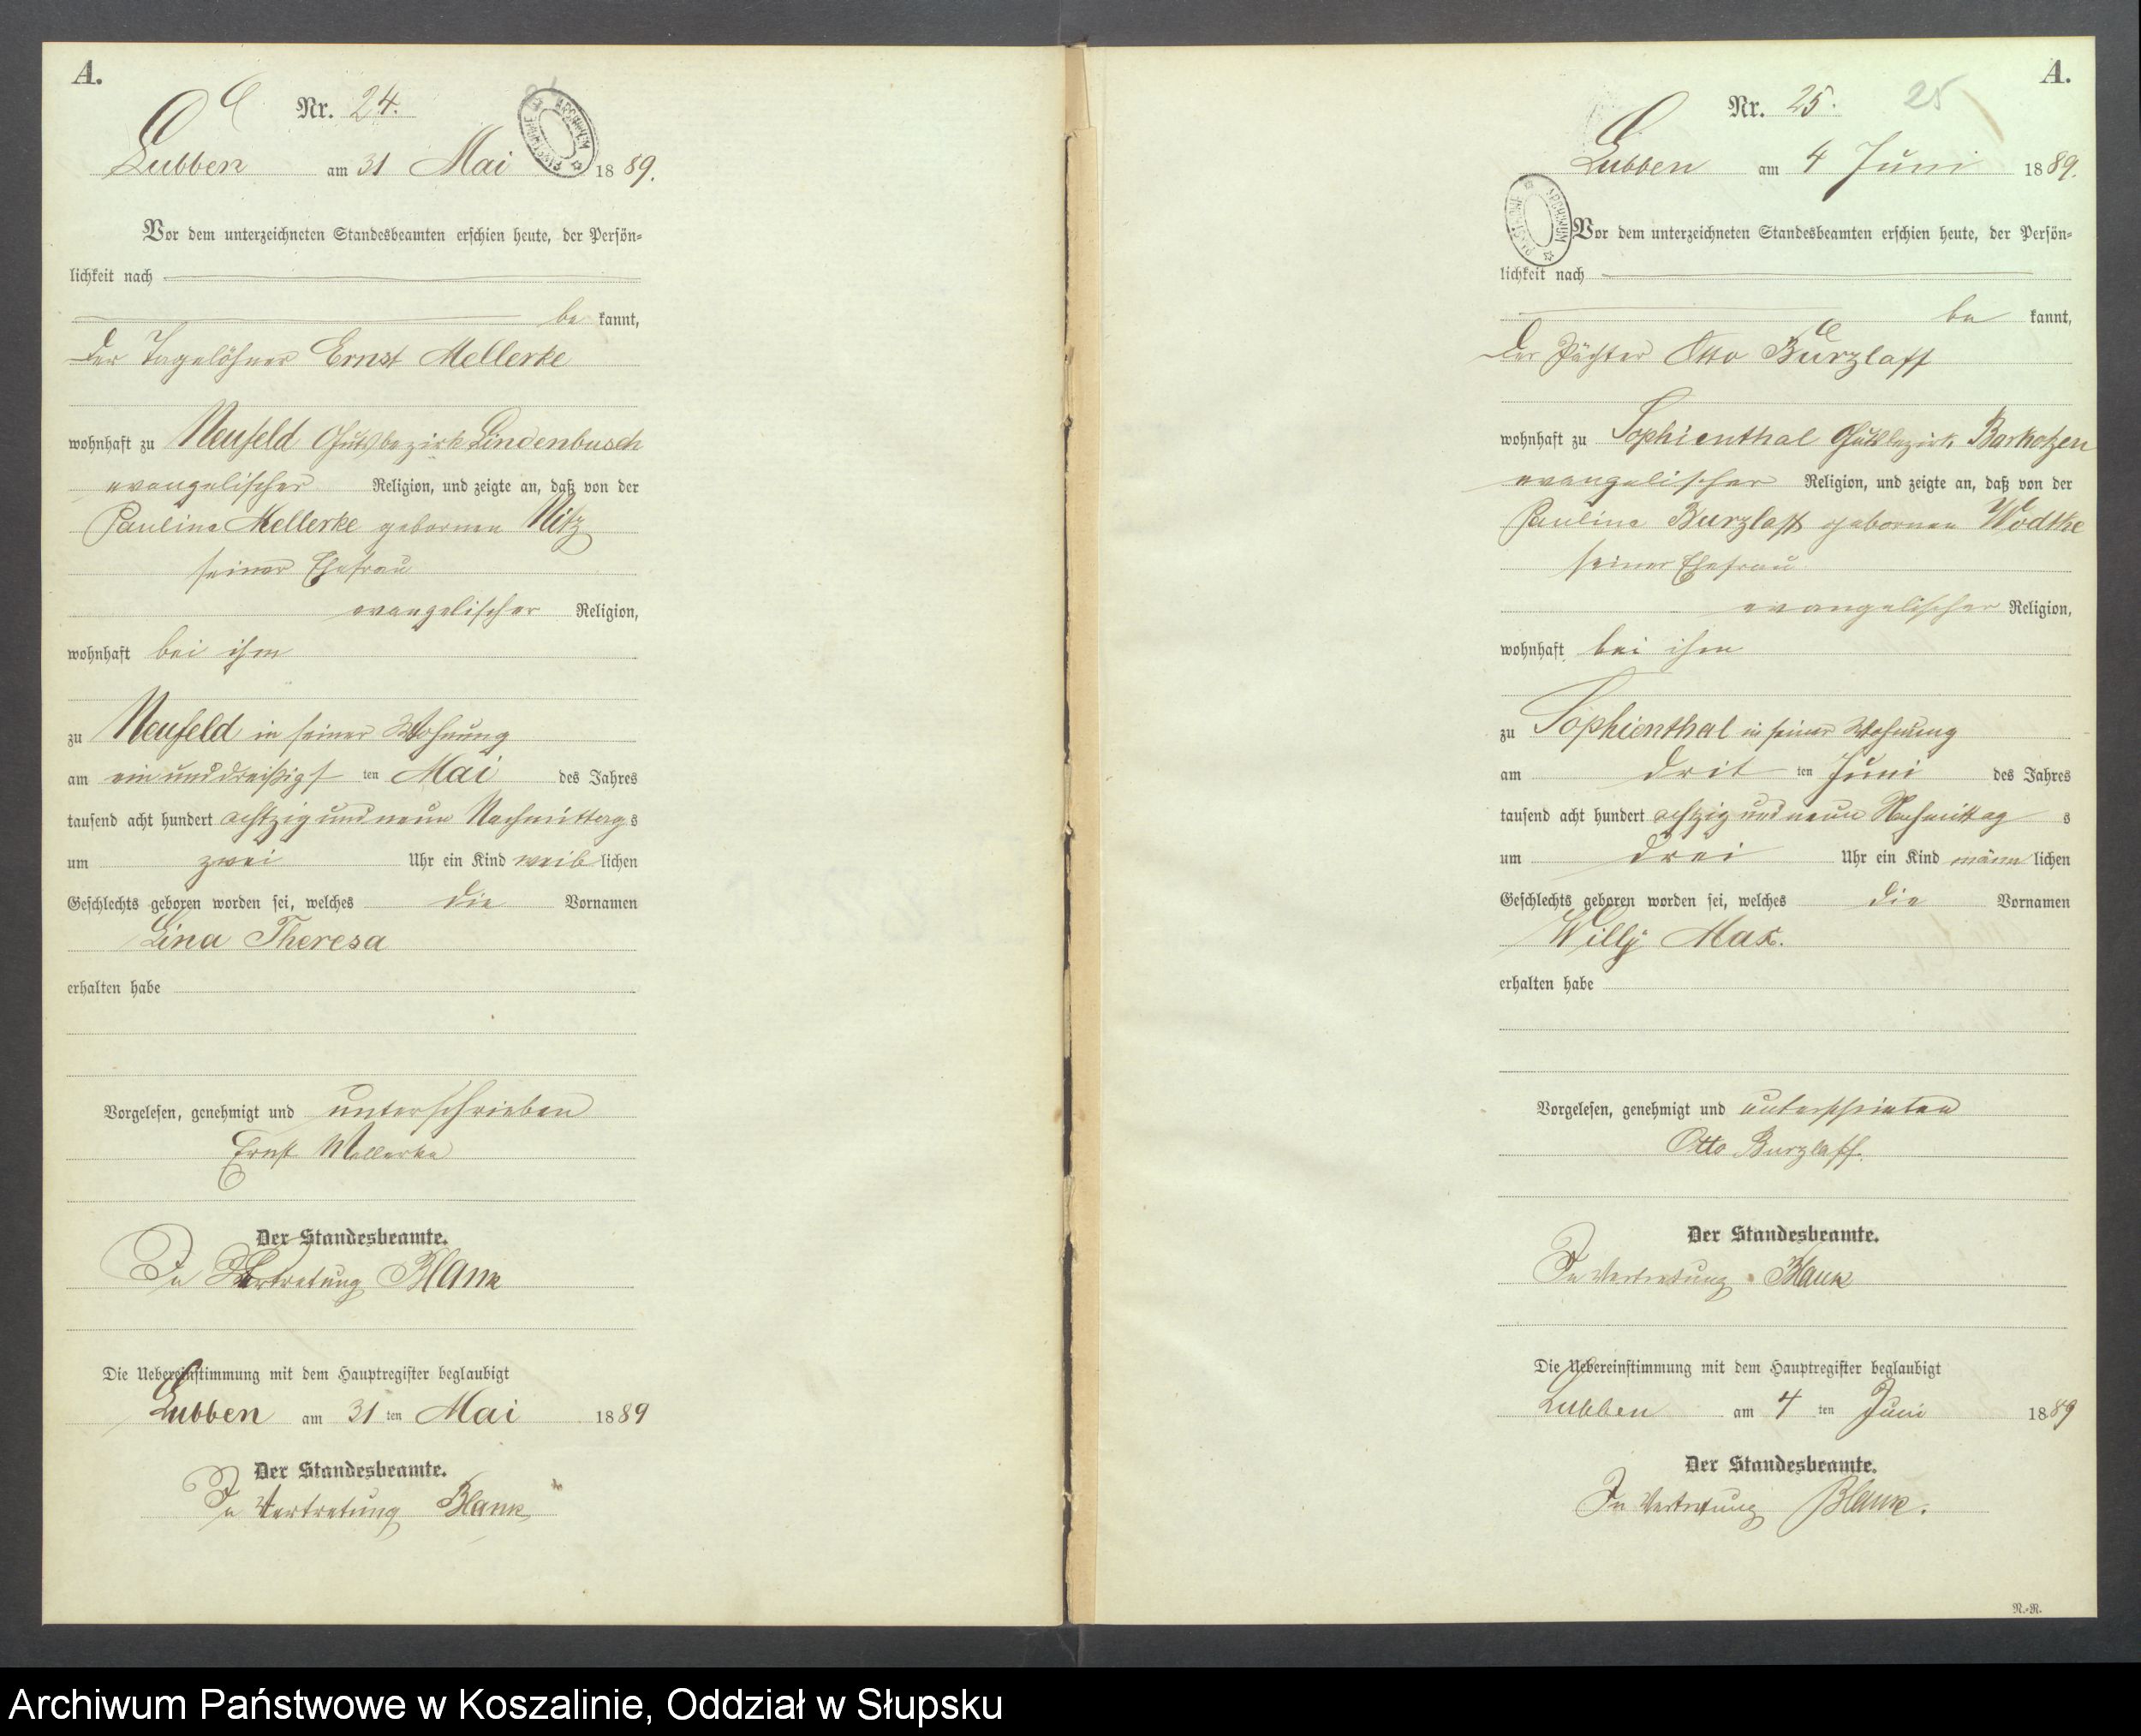 A.
Nr. 24.
Lubben am 31 Mai 1889.
Vor dem unterzeichneten Standesbeamten erschien heute, der Persön-
lichkeit nach
be kannt,
der Tagelöhner Ernst Mellerke
wohnhaft zu Neufeld Gutsbezirk Lindenbusch
evangelischer Religion, und zeigte an, daß von der
Pauline Mellerke gebornen Nitz
seiner Ehefrau
evangelischer Religion,
wohnhaft bei ihm
zu Neufeld in seiner Wohnung
am ein und dreißigst ten Mai des Jahres
tausend acht hundert achtzig und neun Nachmittags
um zwei Uhr ein Kind weiblichen
Geschlechts geboren worden sei, welches die Vornamen
Lina Theresa
erhalten habe
Vorgelesen, genehmigt und unterschrieben
Ernst Mellerke
Der Standesbeamte.
In Vertretung Blank
Die Uebereinstimmung mit dem Hauptregister beglaubigt
Lubben am 31 ten Mai 1889
Der Standesbeamte.
In Vertretung Blank
A.
Nr. 25. 25
Lubben am 4 Juni 1889.
ARCHIWUM
Vor dem unterzeichneten Standesbeamten erschien heute, der Persön-
lichkeit nach
be kannt,
der Pächter Otto Burzlaff
wohnhaft zu Sophienthal Gutsbezirk Barkotzen
evangelischer Religion, und zeigte an, daß von der
Pauline Burzlaff gebornen Wodtke
seiner Ehefrau
evangelischer Religion,
wohnhaft bei ihm
zu Sophienthal in seiner Wohnung
am drit ten Juni des Jahres
tausend acht hundert achtzig und neun Nachmittag s
um drei Uhr ein Kind männlichen
Geschlechts geboren worden sei, welches die Vornamen
Willy Max.
erhalten habe
Vorgelesen, genehmigt und unterschrieben
Otto Burzlaff.
Der Standesbeamte.
In Vertretung Blank
Die Uebereinstimmung mit dem Hauptregister beglaubigt
Lubben am 4 ten Juni 1889
Der Standesbeamte.
In Vertretung Blank.
R.-R.
Archiwum Państwowe w Koszalinie, Oddział w Słupsku